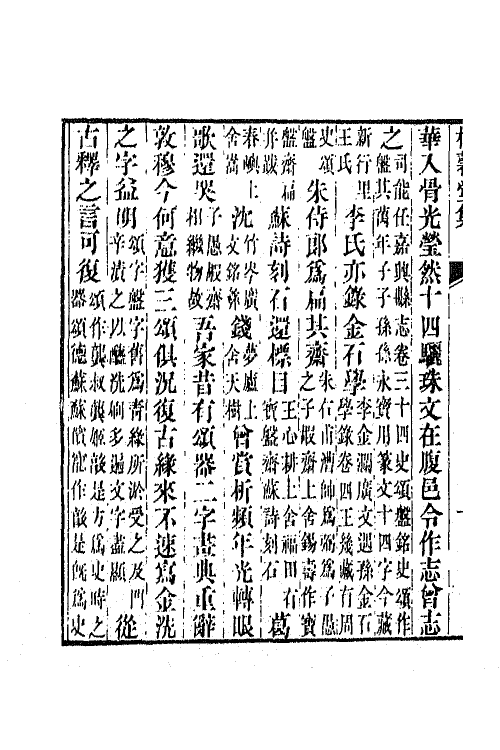 華入骨光瑩然十四驪珠文在腹邑令作志曾志
之司能任嘉興縣志卷三十四史頌盤銘史頌作
盤其萬年子子孫孫永寶用篆文十四字今藏
新行里李氏亦錄金石學李金瀾廣文遇孫金石
王氏學錄卷四王幾藏有周
史頌
盤朱侍郎為扁其齋朱右甫濟師為弼為子愚
之子嘏齋上舍錫壽作寶
盤齋扁
并跋蘇詩刻石還標目王心耕上舍福田有
寶盤齋蘇詩刻石葛
春嶼上
舍嵩沈竹岑廣
文銘彝錢夢廬上
舍天樹曾賞析頻年光轉眼
歌還哭子愚嘏齋
相繼物故吾家昔有頌器二字畫典重辭
敦穆今何意獲三頌俱況復古緣來不速寫金洗
之字益明頌字盤字舊為青綠所淤受之及門
辛漬之以醶洗刷多遍文字盡顯從
古釋之言可復頌作龔叔龔姬敦是方為史時之
器頌德蘇蘇儐